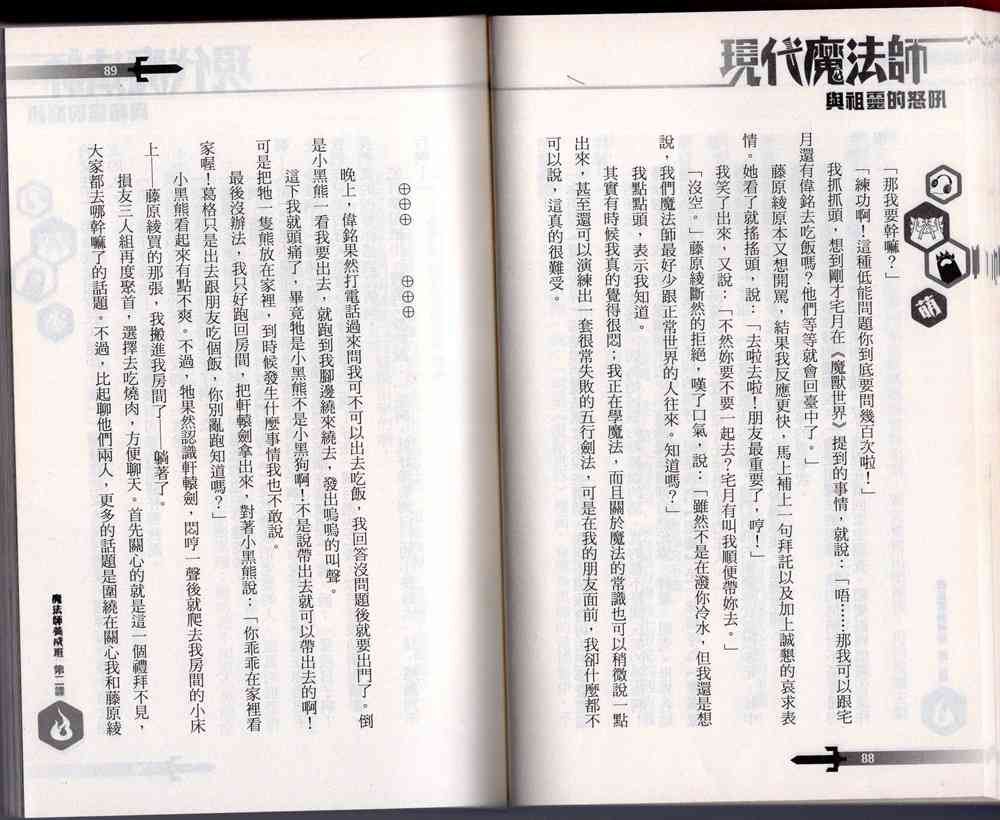 現代魔法師
與祖靈的怒吼
萌
「那我要幹嘛？」
「練功啊！這種低能問題你到底要問幾百次啦！」
我抓抓頭，想到剛才宅月在《魔獸世界》提到的事情，就說：「唔……那我可以跟宅
月還有偉銘去吃飯嗎？他們等等就會回臺中了。」
藤原綾原本又想開罵，結果我反應更快，馬上補上一句拜託以及加上誠懇的哀求表
情。她看了就搖搖頭，說：「去啦去啦！朋友最重要了，哼！」
我笑了出來，又說：「不然妳要不要一起去？宅月有叫我順便帶妳去。」
「沒空。」藤原綾斷然的拒絕，嘆了口氣，說：「雖然不是在潑你冷水，但我還是想
說，我們魔法師最好少跟正常世界的人往來。知道嗎？」
我點點頭，表示我知道。
其實有時候我真的覺得很悶；我正在學魔法，而且關於魔法的常識也可以稍微說一點
出來，甚至還可以演練出一套很常失敗的五行劍法，可是在我的朋友面前，我卻什麼都不
可以說，這真的很難受。
88
89
⊕⊕⊕　⊕⊕⊕
晚上，偉銘果然打電話過來問我可不可以出去吃飯，我回答沒問題後就要出門了。倒
是小黑熊一看我要出去，就跑到我腳邊繞來繞去，發出嗚嗚的叫聲。
這下我就頭痛了，畢竟牠是小黑熊不是小黑狗啊！不是說帶出去就可以帶出去的啊！
可是把牠一隻熊放在家裡，到時候發生什麼事情我也不敢說。
最後沒辦法，我只好跑回房間，把軒轅劍拿出來，對著小黑熊說：「你乖乖在家裡看
家喔！葛格只是出去跟朋友吃個飯，你別亂跑知道嗎？」
小黑熊看起來有點不爽。不過，牠果然認識軒轅劍，悶哼一聲後就爬去我房間的小床
上——藤原綾買的那張，我搬進我房間了——躺著了。
損友三人組再度聚首，選擇去吃燒肉，方便聊天。首先關心的就是這一個禮拜不見，
大家都去哪幹嘛了的話題。不過，比起聊他們兩人，更多的話題是圍繞在關心我和藤原綾
魔法師養成班　第二課